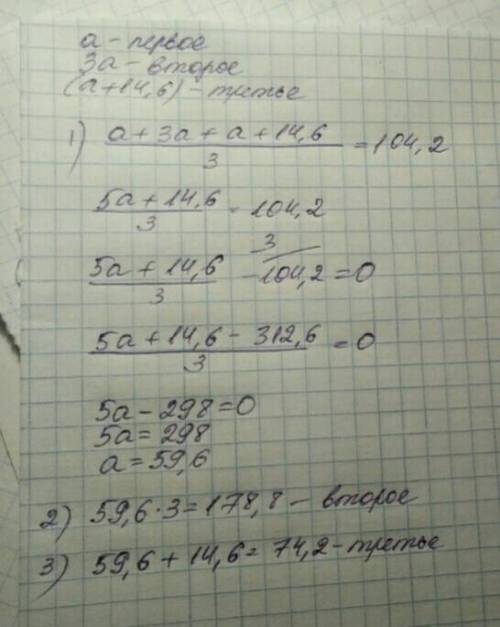 а - первое
3а - второе
(а + 14,6) - третье
1) а + 3а + а + 14,6 / 3 = 104,2
5а + 14,6 / 3 = 104,2
5а + 14,6 / 3 - 104,2 = 0 3
5а + 14,6 - 312,6 / 3 = 0
5а - 298 = 0
5а = 298
а = 59,6
2) 59,6 · 3 = 178,8 - второе
3) 59,6 + 14,6 = 74,2 - третье